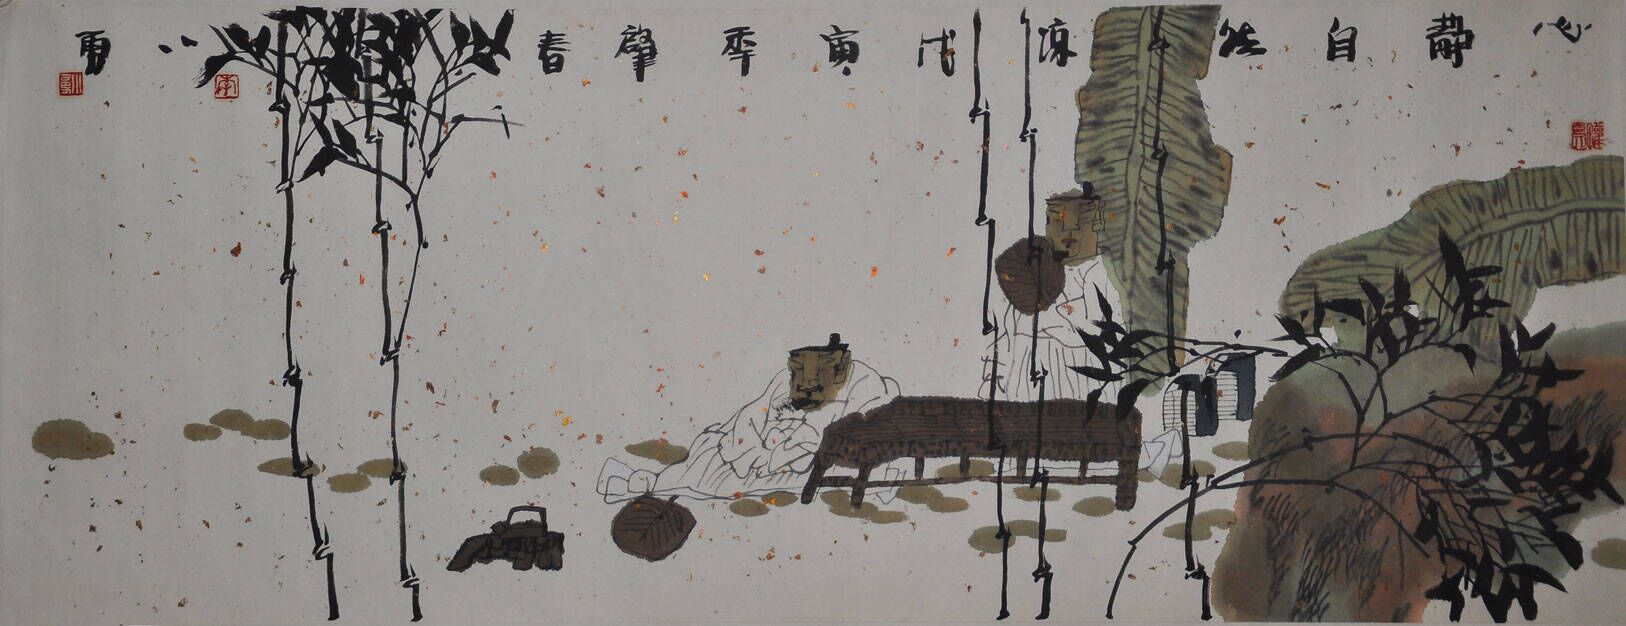 心静自然凉戊寅秊肇春
勇